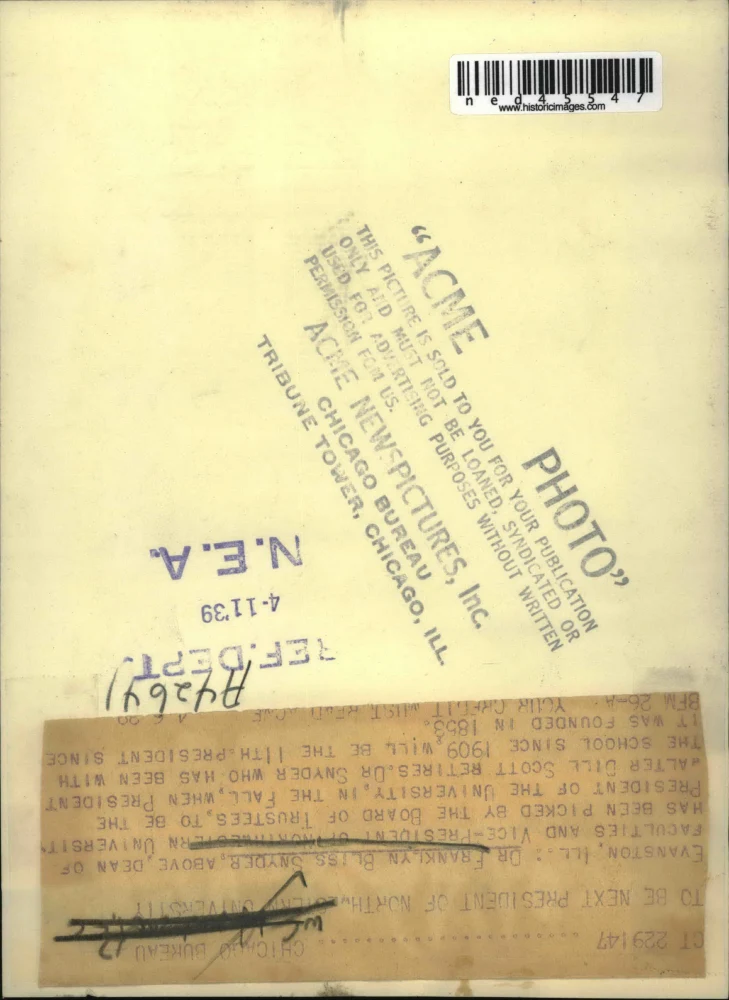 ned45547
www.historicimages.com
"ACME PHOTO"
THIS PICTURE IS SOLD TO YOU FOR YOUR PUBLICATION
ONLY AND MUST NOT BE LOANED, SYNDICATED OR
USED FOR ADVERTISING PURPOSES WITHOUT WRITTEN
PERMISSION FROM US.
ACME NEWSPICTURES, Inc.
CHICAGO BUREAU
TRIBUNE TOWER, CHICAGO, ILL
N.E.A.
4-11'39
REF. DEPT.
CT 229147 CHICAGO BUREAU
TO BE NEXT PRESIDENT OF NORTHWESTERN UNIVERSITY
EVANSTON, ILL.: DR FRANKLYN BLISS SNYDER, ABOVE, DEAN OF
FACULTIES AND VICE-PRESIDENT OF NORTHWESTERN UNIVERSITY
HAS BEEN PICKED BY THE BOARD OF TRUSTEES, TO BE THE
PRESIDENT OF THE UNIVERSITY, IN THE FALL, WHEN PRESIDENT
WALTER DILL SCOTT RETIRES. DR SNYDER WHO HAS BEEN WITH
THE SCHOOL SINCE 1909, WILL BE THE 11TH PRESIDENT SINCE
IT WAS FOUNDED IN 1853.
BFM 26-A YOUR CREDIT MUST READ ACME